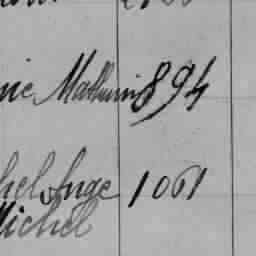 nie Mathurin 894
hel Ange 1061
Michel